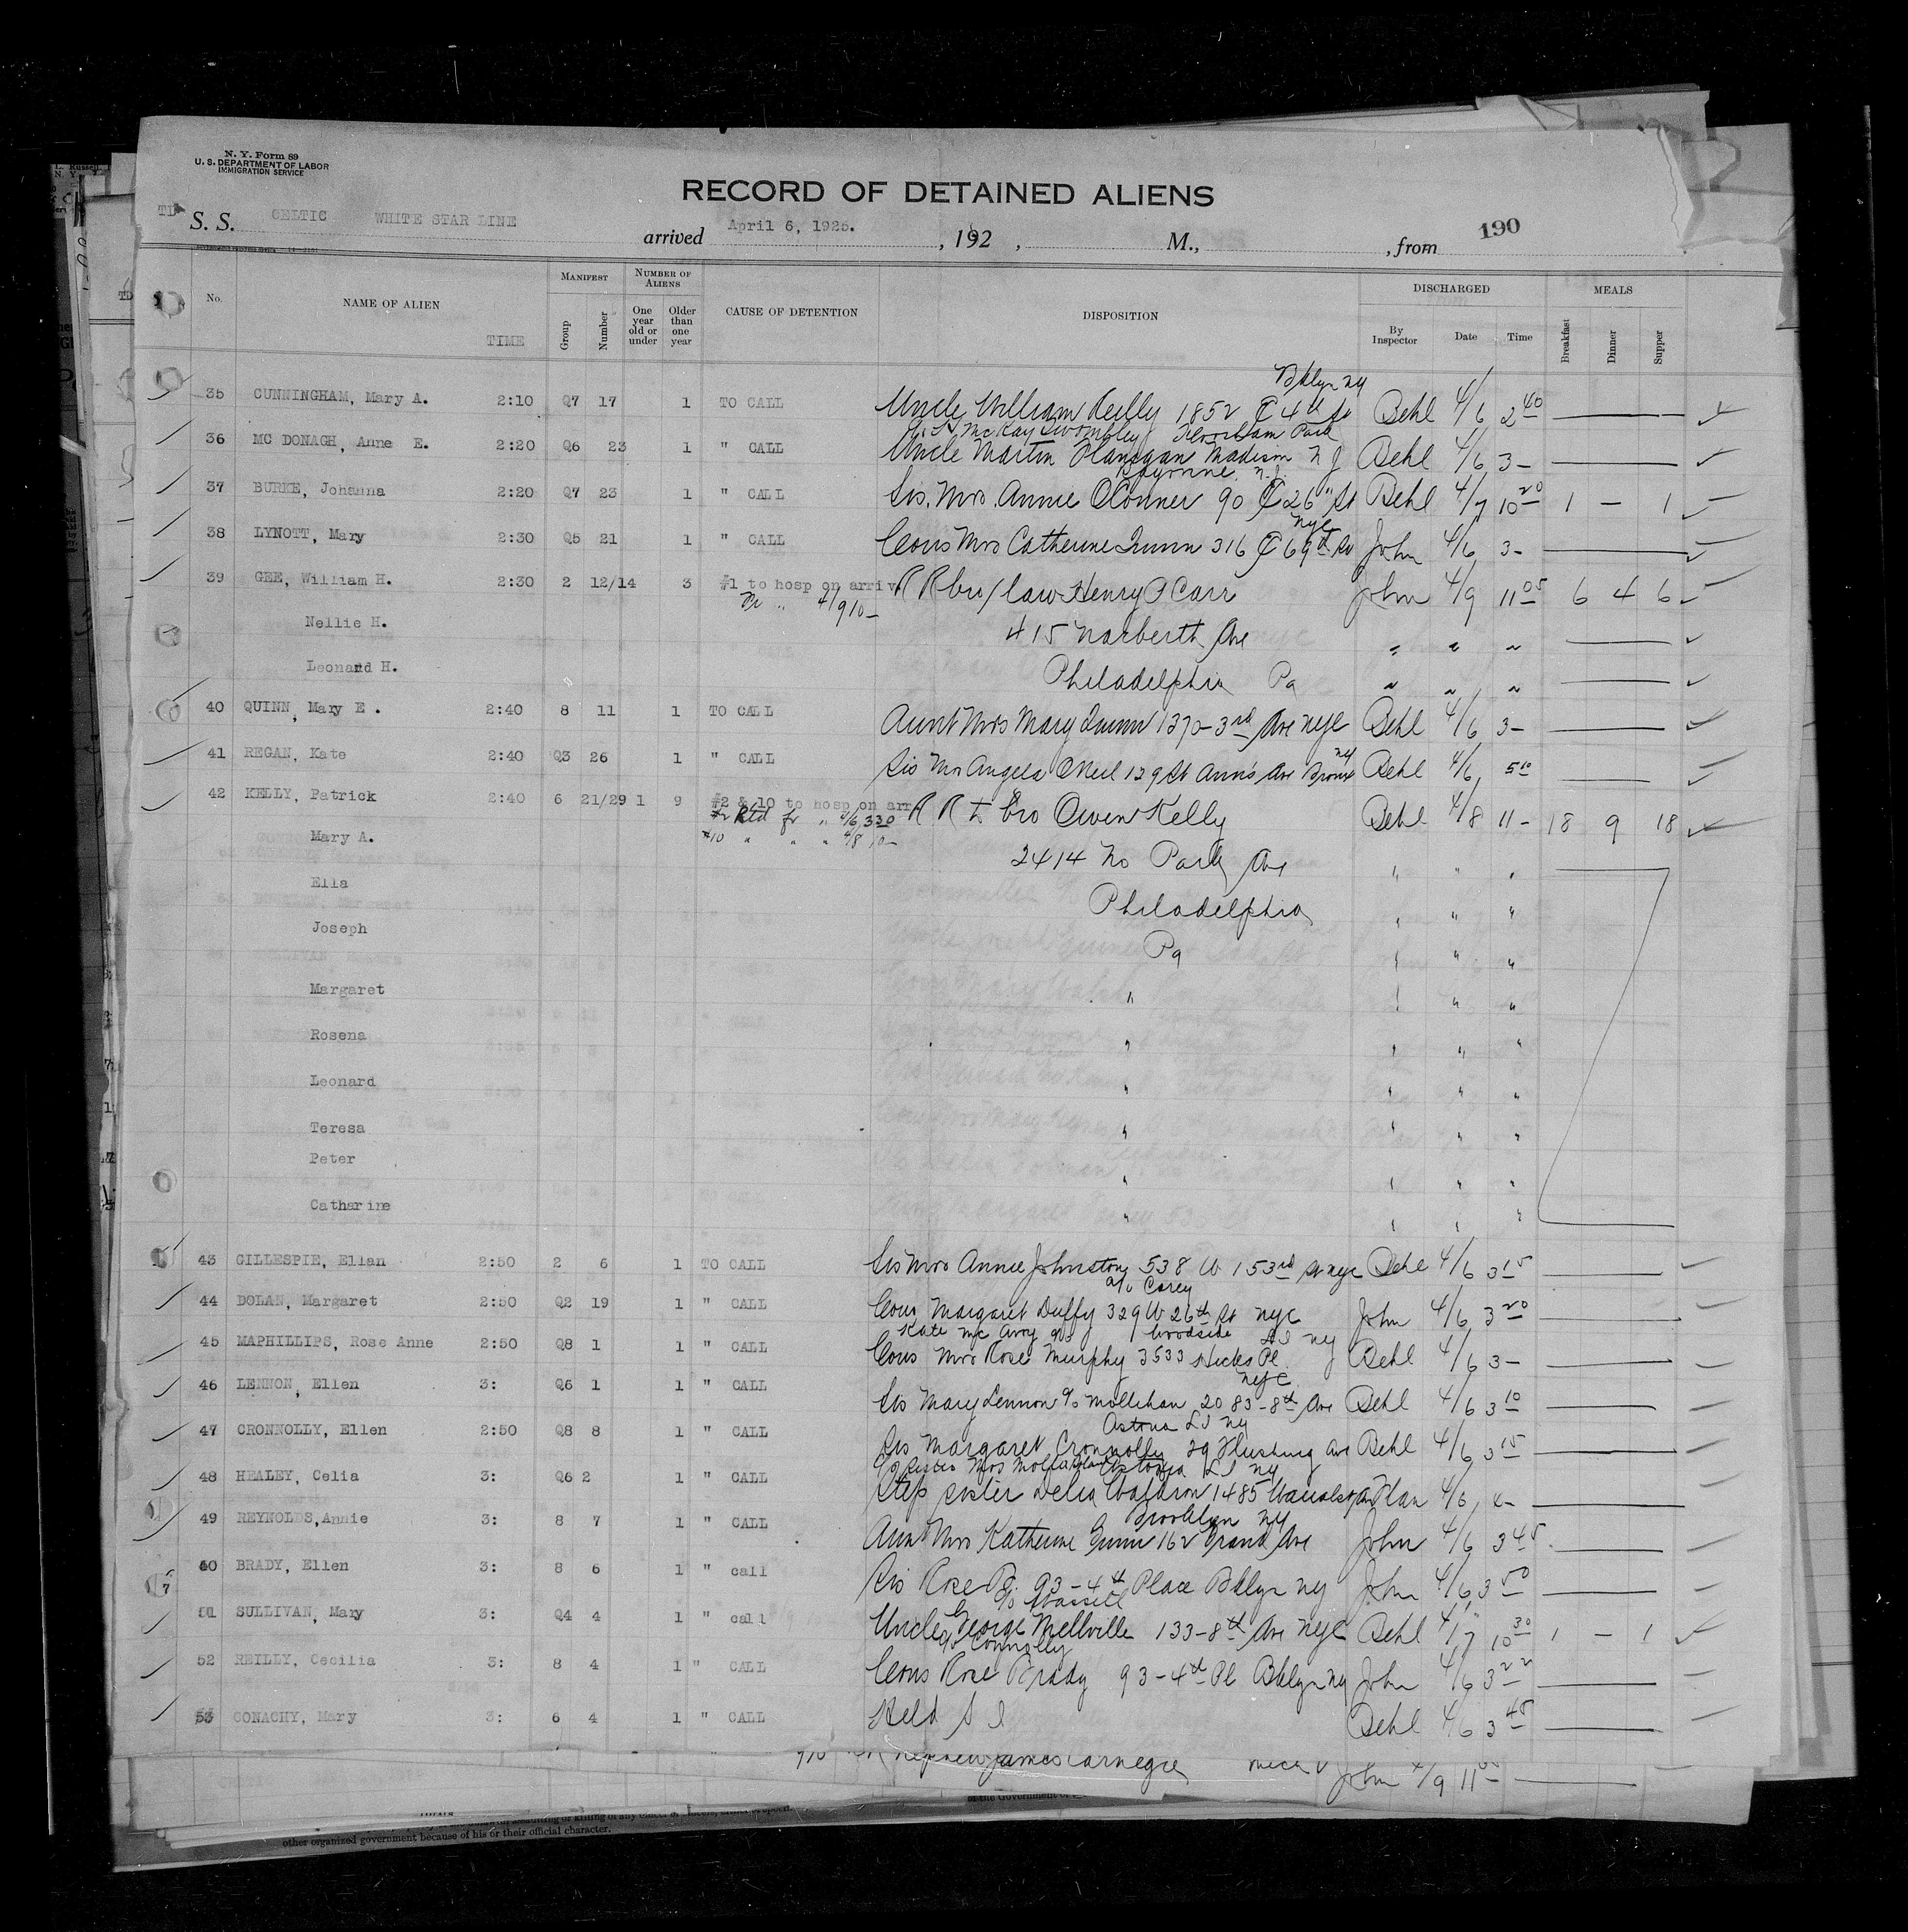 N. Y. Form 89
U. S. DEPARTMENT OF LABOR
IMMIGRATION SERVICE
RECORD OF DETAINED ALIENS
S. S. CELTIC WHITE STAR LINE arrived April 6, 1925. , 192 , M., , from 190
No. NAME OF ALIEN TIME MANIFEST Group Number NUMBER OF ALIENS One year old or under Older than one year CAUSE OF DETENTION DISPOSITION DISCHARGED By Inspector Date Time MEALS Breakfast Dinner Supper
Bklyn ny
35 CUNNINGHAM, Mary A. 2:10 Q7 17 1 TO CALL Uncle William Reilly 1852 E 4th St Behl 4/6 2 40
McKay Twombley Florham Park
36 MC DONAGH, Anne E. 2:20 Q6 23 1 " CALL Uncle Martin Flanagan Madison N J Behl 4/6 3-
Bayonne, n.j.
37 BURKE, Johanna 2:20 Q7 23 1 " CALL Sis. Mrs. Annie OConner 90 E 26" St Behl 4/7 10 20 1 — 1
nyc
38 LYNOTT, Mary 2:30 Q5 21 1 " CALL Cous Mrs Catherine Quinn 316 E 69th St John 4/6 3-
39 GEE, William H. 2:30 2 12/14 3 #1 to hosp on arriv R R bro/law Henry P Carr John 4/9 11 05 6 4 6
4/9 10-
Nellie H. 415 Narberth Ave " " "
Leonard H. Philadelphia Pa " " "
40 QUINN, Mary E. 2:40 8 11 1 TO CALL Aunt Mrs Mary Quinn 1370-3rd Ave nyc Behl 4/6 3-
41 REGAN, Kate 2:40 Q3 26 1 " CALL Sis Mrs Angela ONeil 129 St Ann's Ave Bronx ny Behl 4/6 5 10
42 KELLY, Patrick 2:40 6 21/29 1 9 #2 & 10 to hosp on arr R R to bro Owen Kelly Behl 4/8 11- 18 9 18
#2 Rtd fr " 4/6 3 30
#10 " " " 4/8 10-
Mary A. 2414 No Park Ave " " "
Ella Philadelphia " " "
Joseph Pa " " "
Margaret " " " "
Rosena " " " "
Leonard " " " "
Teresa " " " "
Peter " " " "
Catharine " " " "
43 GILLESPIE, Ellan 2:50 2 6 1 TO CALL Sis Mrs Annie Johnston 538 W 153rd St nyc Behl 4/6 3 15
c/o Carey
44 DOLAN, Margaret 2:50 Q2 19 1 " CALL Cous Margaret Duffy 329 W 26th St nyc John 4/6 3 20
Kate Mc Avoy Woodside L I ny
45 MAPHILLIPS, Rose Anne 2:50 Q8 1 1 " CALL Cous Mrs Rose Murphy 3533 Hicks Pl. Behl 4/6 3-
nyc
46 LENNON, Ellen 3: Q6 1 1 " CALL Sis Mary Lennon c/o Mollihan 2083-8th Ave Behl 4/6 3 10
Astoria L I ny
47 CRONNOLLY, Ellen 2:50 Q8 8 1 " CALL Sis Margaret Cronnolly 29 Flushing Ave Behl 4/6 3 15
Astoria L I ny
48 HEALEY, Celia 3: Q6 2 1 " CALL Step sister Delia Waldron 1485 4/6
Brooklyn ny
49 REYNOLDS,Annie 3: 8 7 1 " CALL Aunt Mrs Katherine Gunn 162 Grand Ave John 4/6 3 45
50 BRADY, Ellen 3: 8 6 1 " call Sis Rose B. 93-4th Place Bklyn ny John 4/6 3 50
51 SULLIVAN, Mary 3: Q4 4 1 " call Uncle George Mellville 133-8th Ave nyc Behl 4/7 10 30 1 — 1
c/o Connolly
52 REILLY, Cecilia 3: 8 4 1 " CALL Cous Rose Brady 93-4th Pl Bklyn ny John 4/6 3 22
53 CONACHY, Mary 3: 6 4 1 " CALL Held S I Behl 4/6 3 45
nephew James Carnegie John 4/9 11
other organized government because of his or their official character.